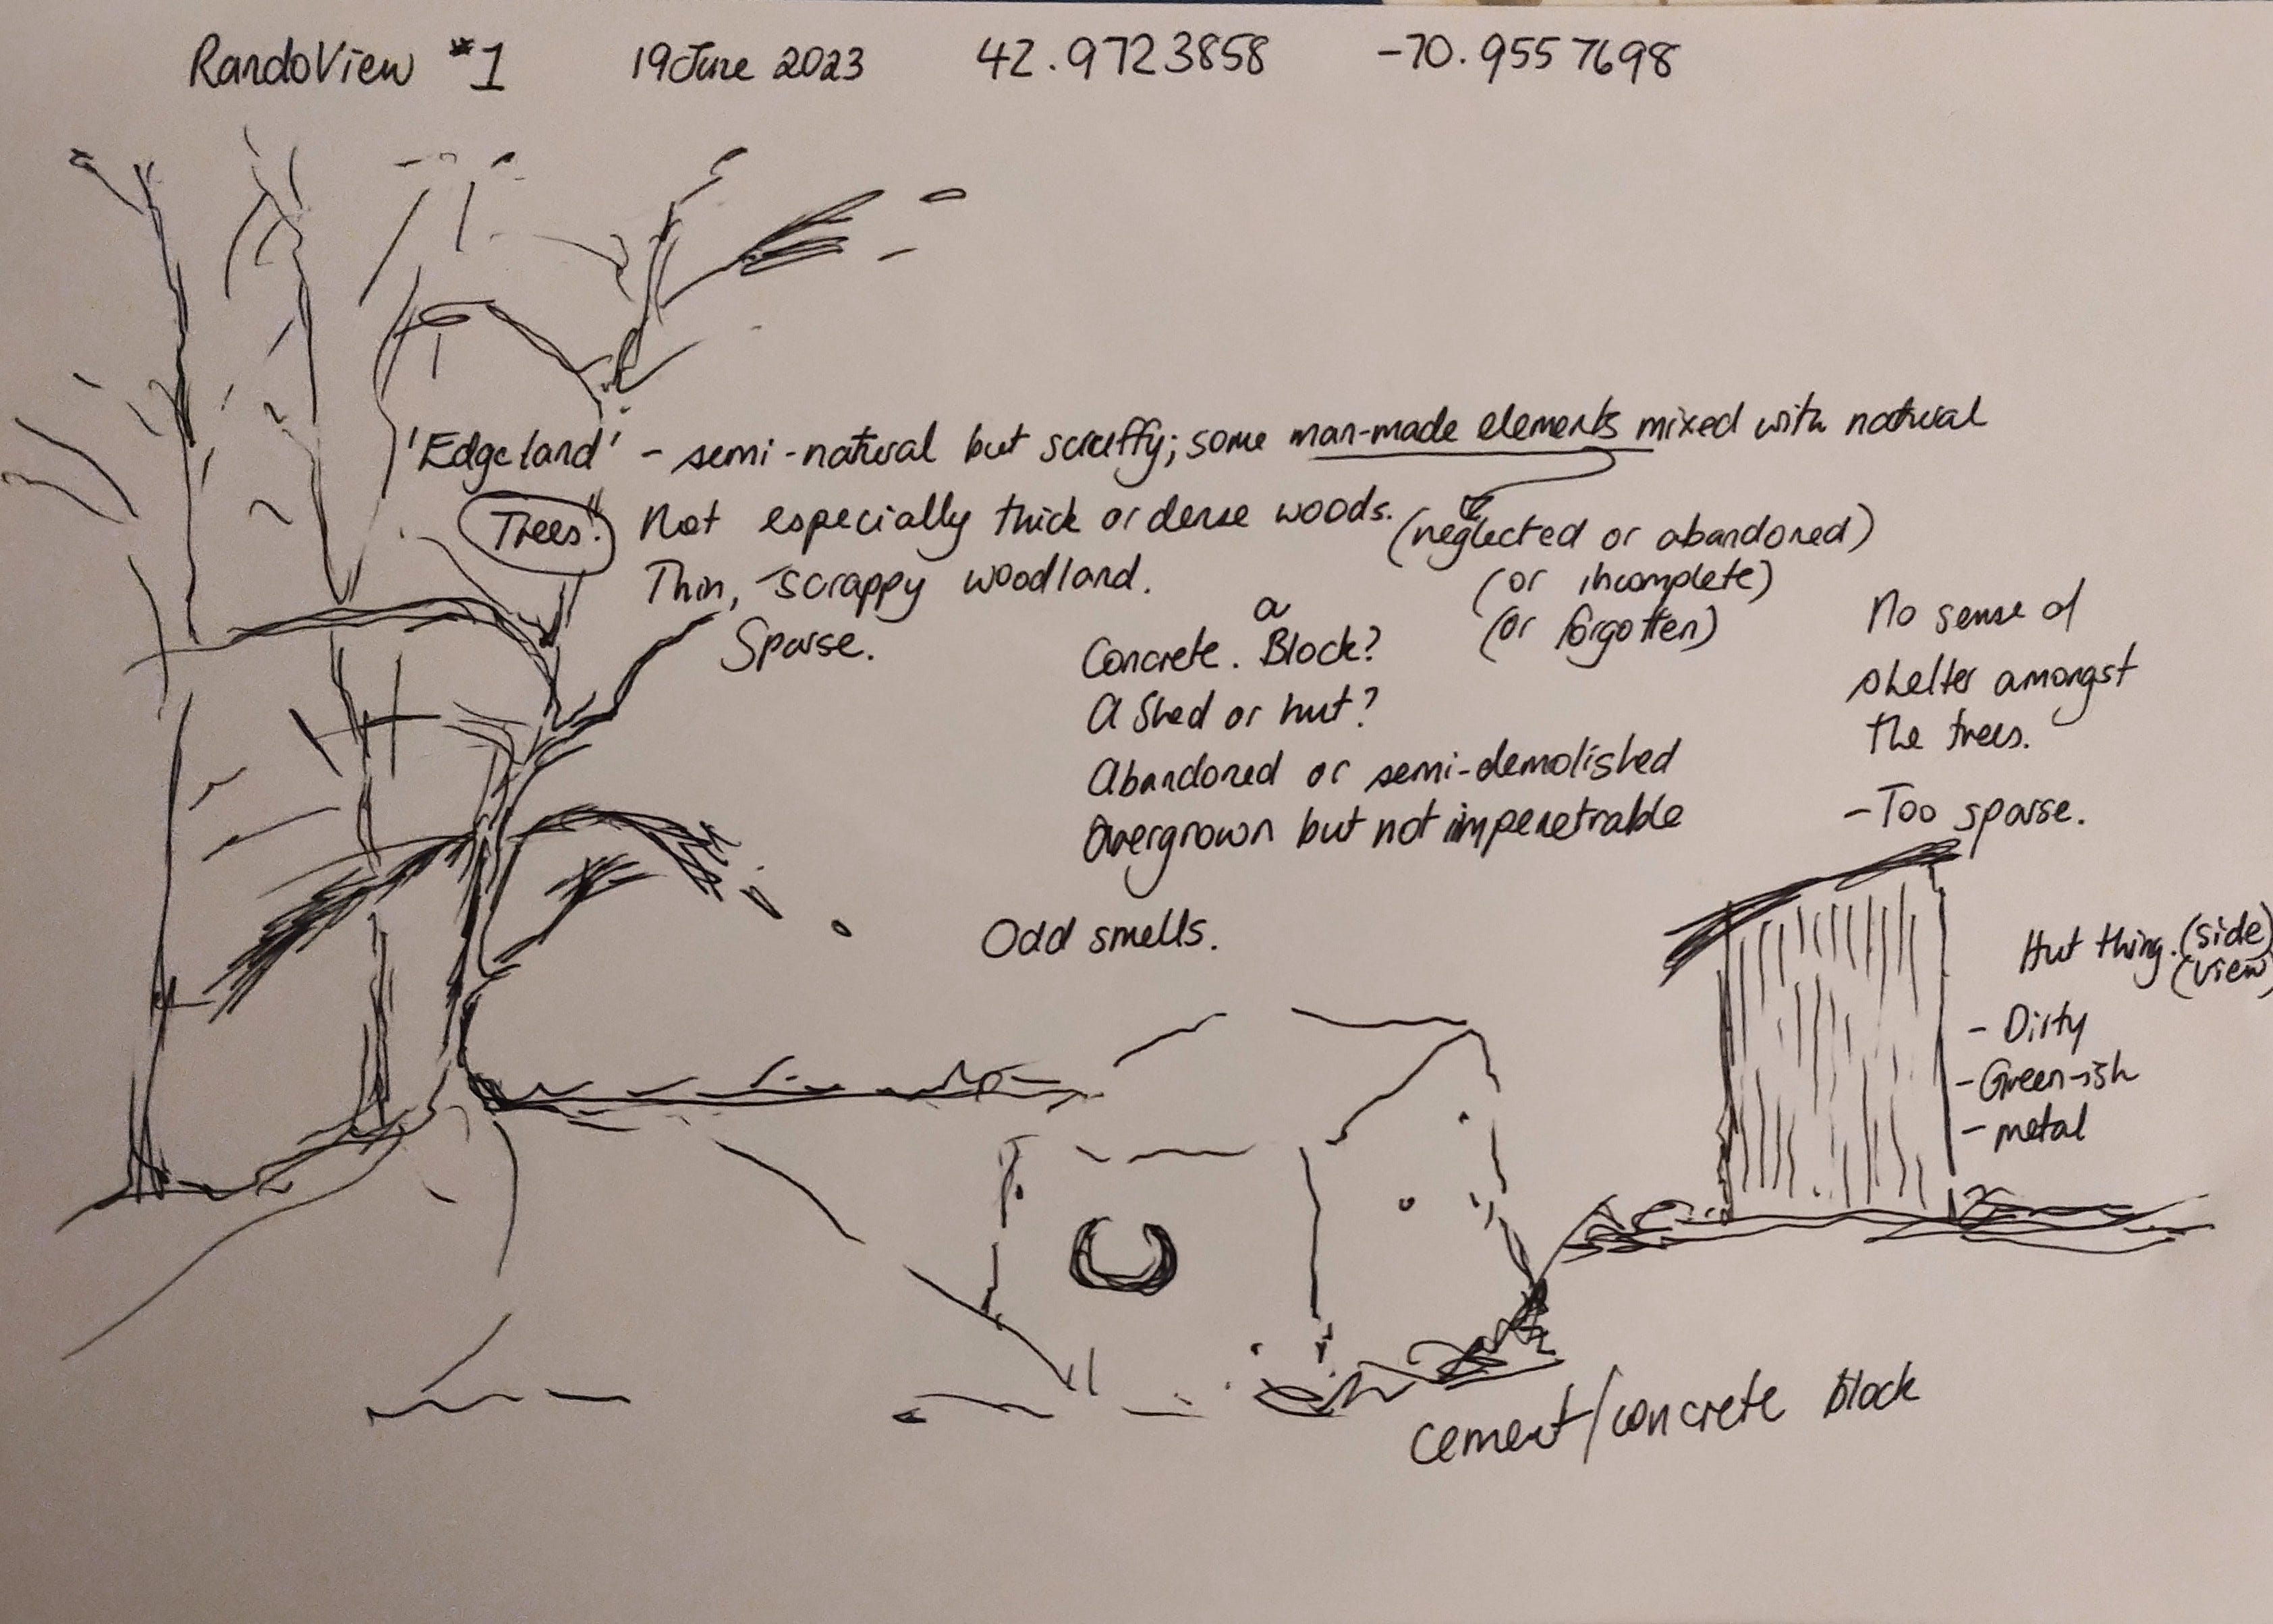 RandoView #1 19 June 2023 42.9723858 -70.9557698
'Edgeland' - semi-natural but scruffy; some man-made elements mixed with natural
Trees! Not especially thick or dense woods. (neglected or abandoned)
Thin, scrappy woodland. (or incomplete)
Sparse. (or forgotten)
Concrete. a Block?
A Shed or hut?
Abandoned or semi-demolished
Overgrown but not impenetrable
No sense of
shelter amongst
the trees.
- Too sparse.
Odd smells.
Hut thing. (side)
(view)
- Dirty
- Green-ish
- metal
cement/concrete block